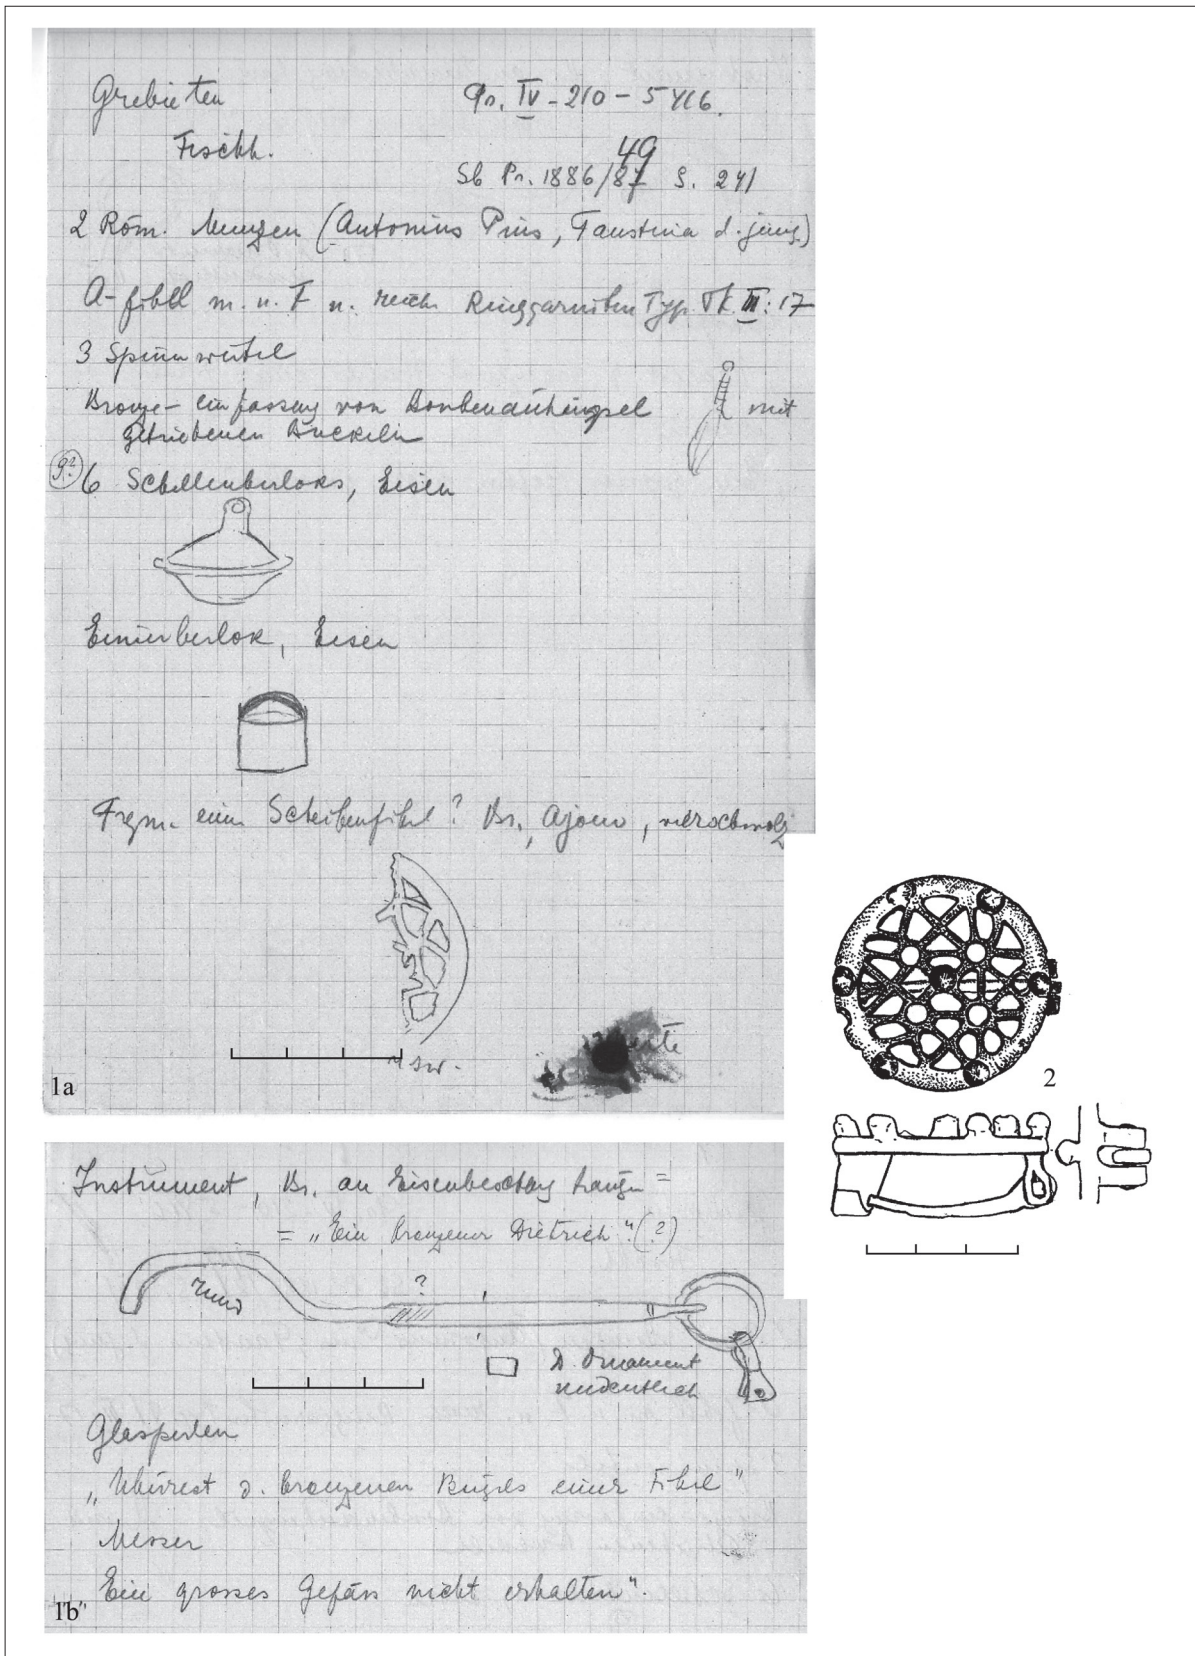 Grebieten
Gr. IV - 210 - 5416.
Fischh.
49
Sb Pr. 1886/87 S. 241
2 Röm. Munzen (Antonius Pius, Faustina d. jüng.)
A-fibel m. u. F u. reich. Ringgarnitur Typ Tk. III: 17
3 Spinnwirtel
Bronze-einfassung von Bombenanhängsel mit
getriebenen Buckeln
6 Schellenberloks, Eisen
Eimerberlok, Eisen
Fragm. einer Scheibenfibel? Br., Ajour, verschmolz
usw.
1a
2
Instrument, Br. an Eisenbeschlag hängen =
= „Ein bronzener Dietrich“. (?)
rund
?
D. Ornament
undeutlich
Glasperlen
„Überrest d. bronzenen Bügels einer Fibel"
Messer
Ein grosses Gefäss nicht erhalten".
1b